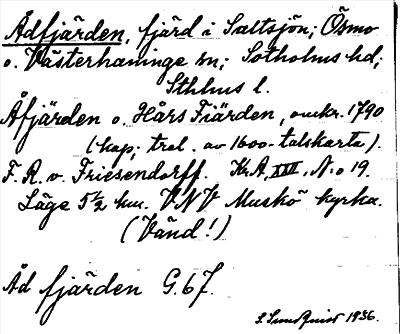 Ådfjärden, fjärd i Saltsjön; Ösmo
o. Västerhaninge sn; Sotholms hd;
Sthlms l.
Åfjärden o. Hårs Fiärden, omkr. 1790
(kop; trol. av 1600-talskarta).
F. R. v. Friesendorff. Kr.A. XVI, N:o 19.
Läge 5½ km. VNV Muskö kyrka.
(Vänd!)
Åd fjärden G. 67.
S. Sundquist 1936.